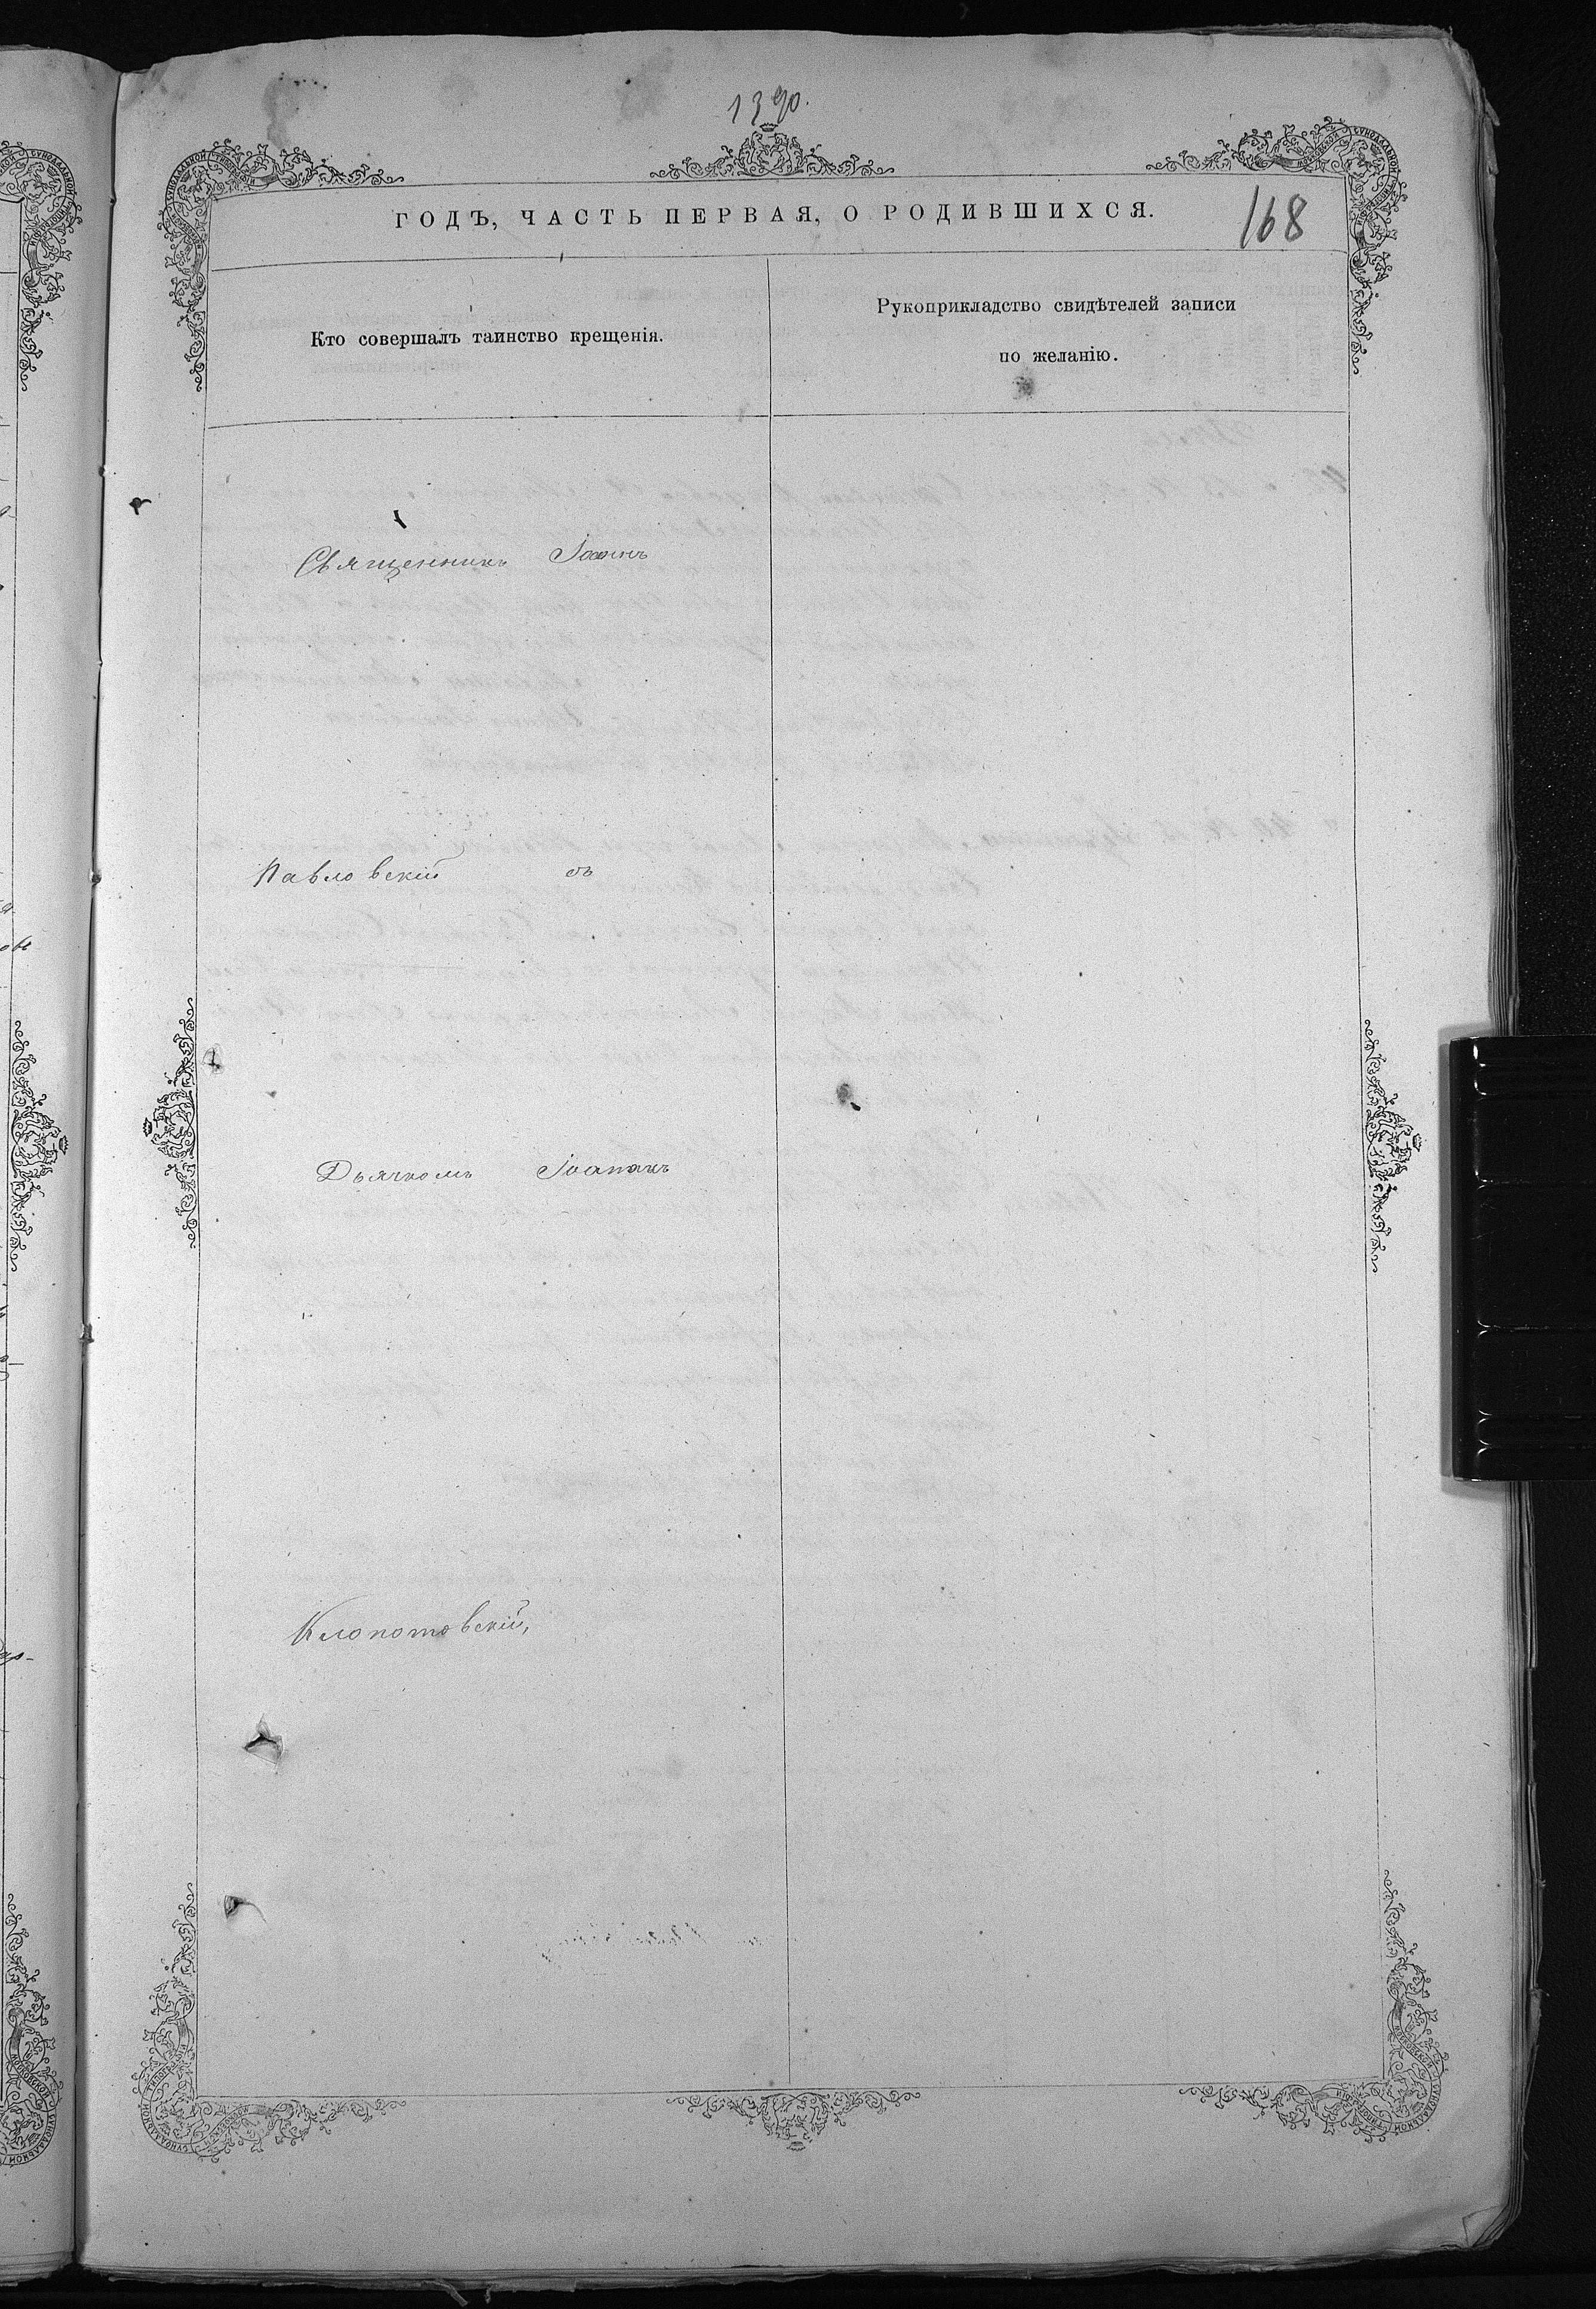 1390.
ГОДЪ, ЧАСТЬ ПЕРВАЯ, О РОДИВШИХСЯ.
168
Кто совершалъ таинство крещенія.
Рукоприкладство свидѣтелей записи
по желанію.
Священникъ Іоаннъ
Павловскій съ
Дьячкомъ Іоанномъ
Клопотовскій,